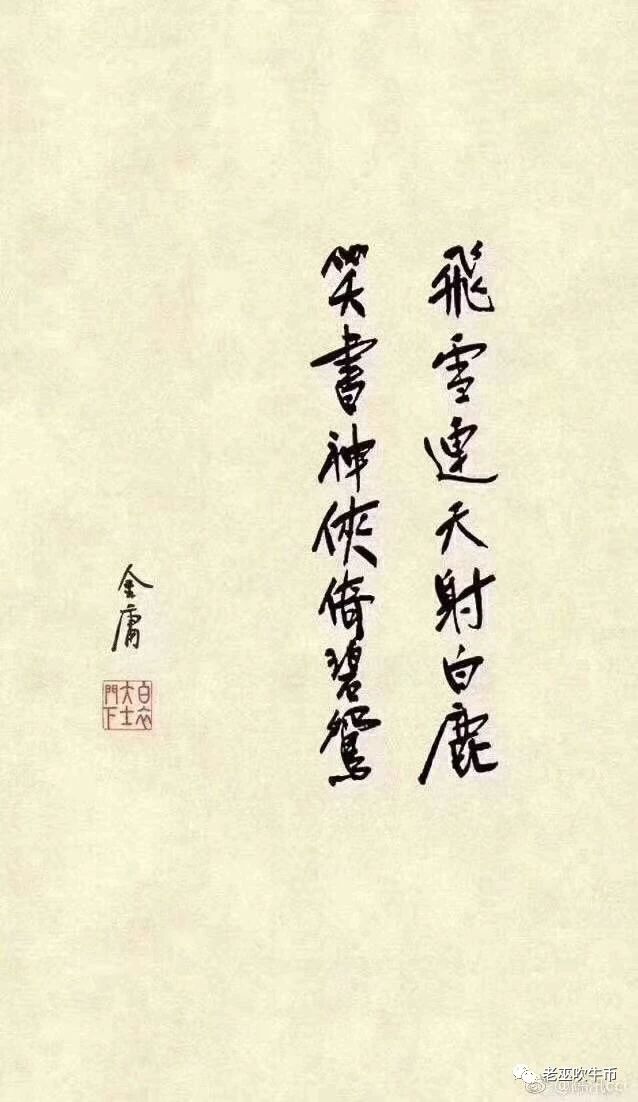 飛雪連天射白鹿
笑書神俠倚碧鴛
金庸
白衣
大士
門下
老巫吹牛币